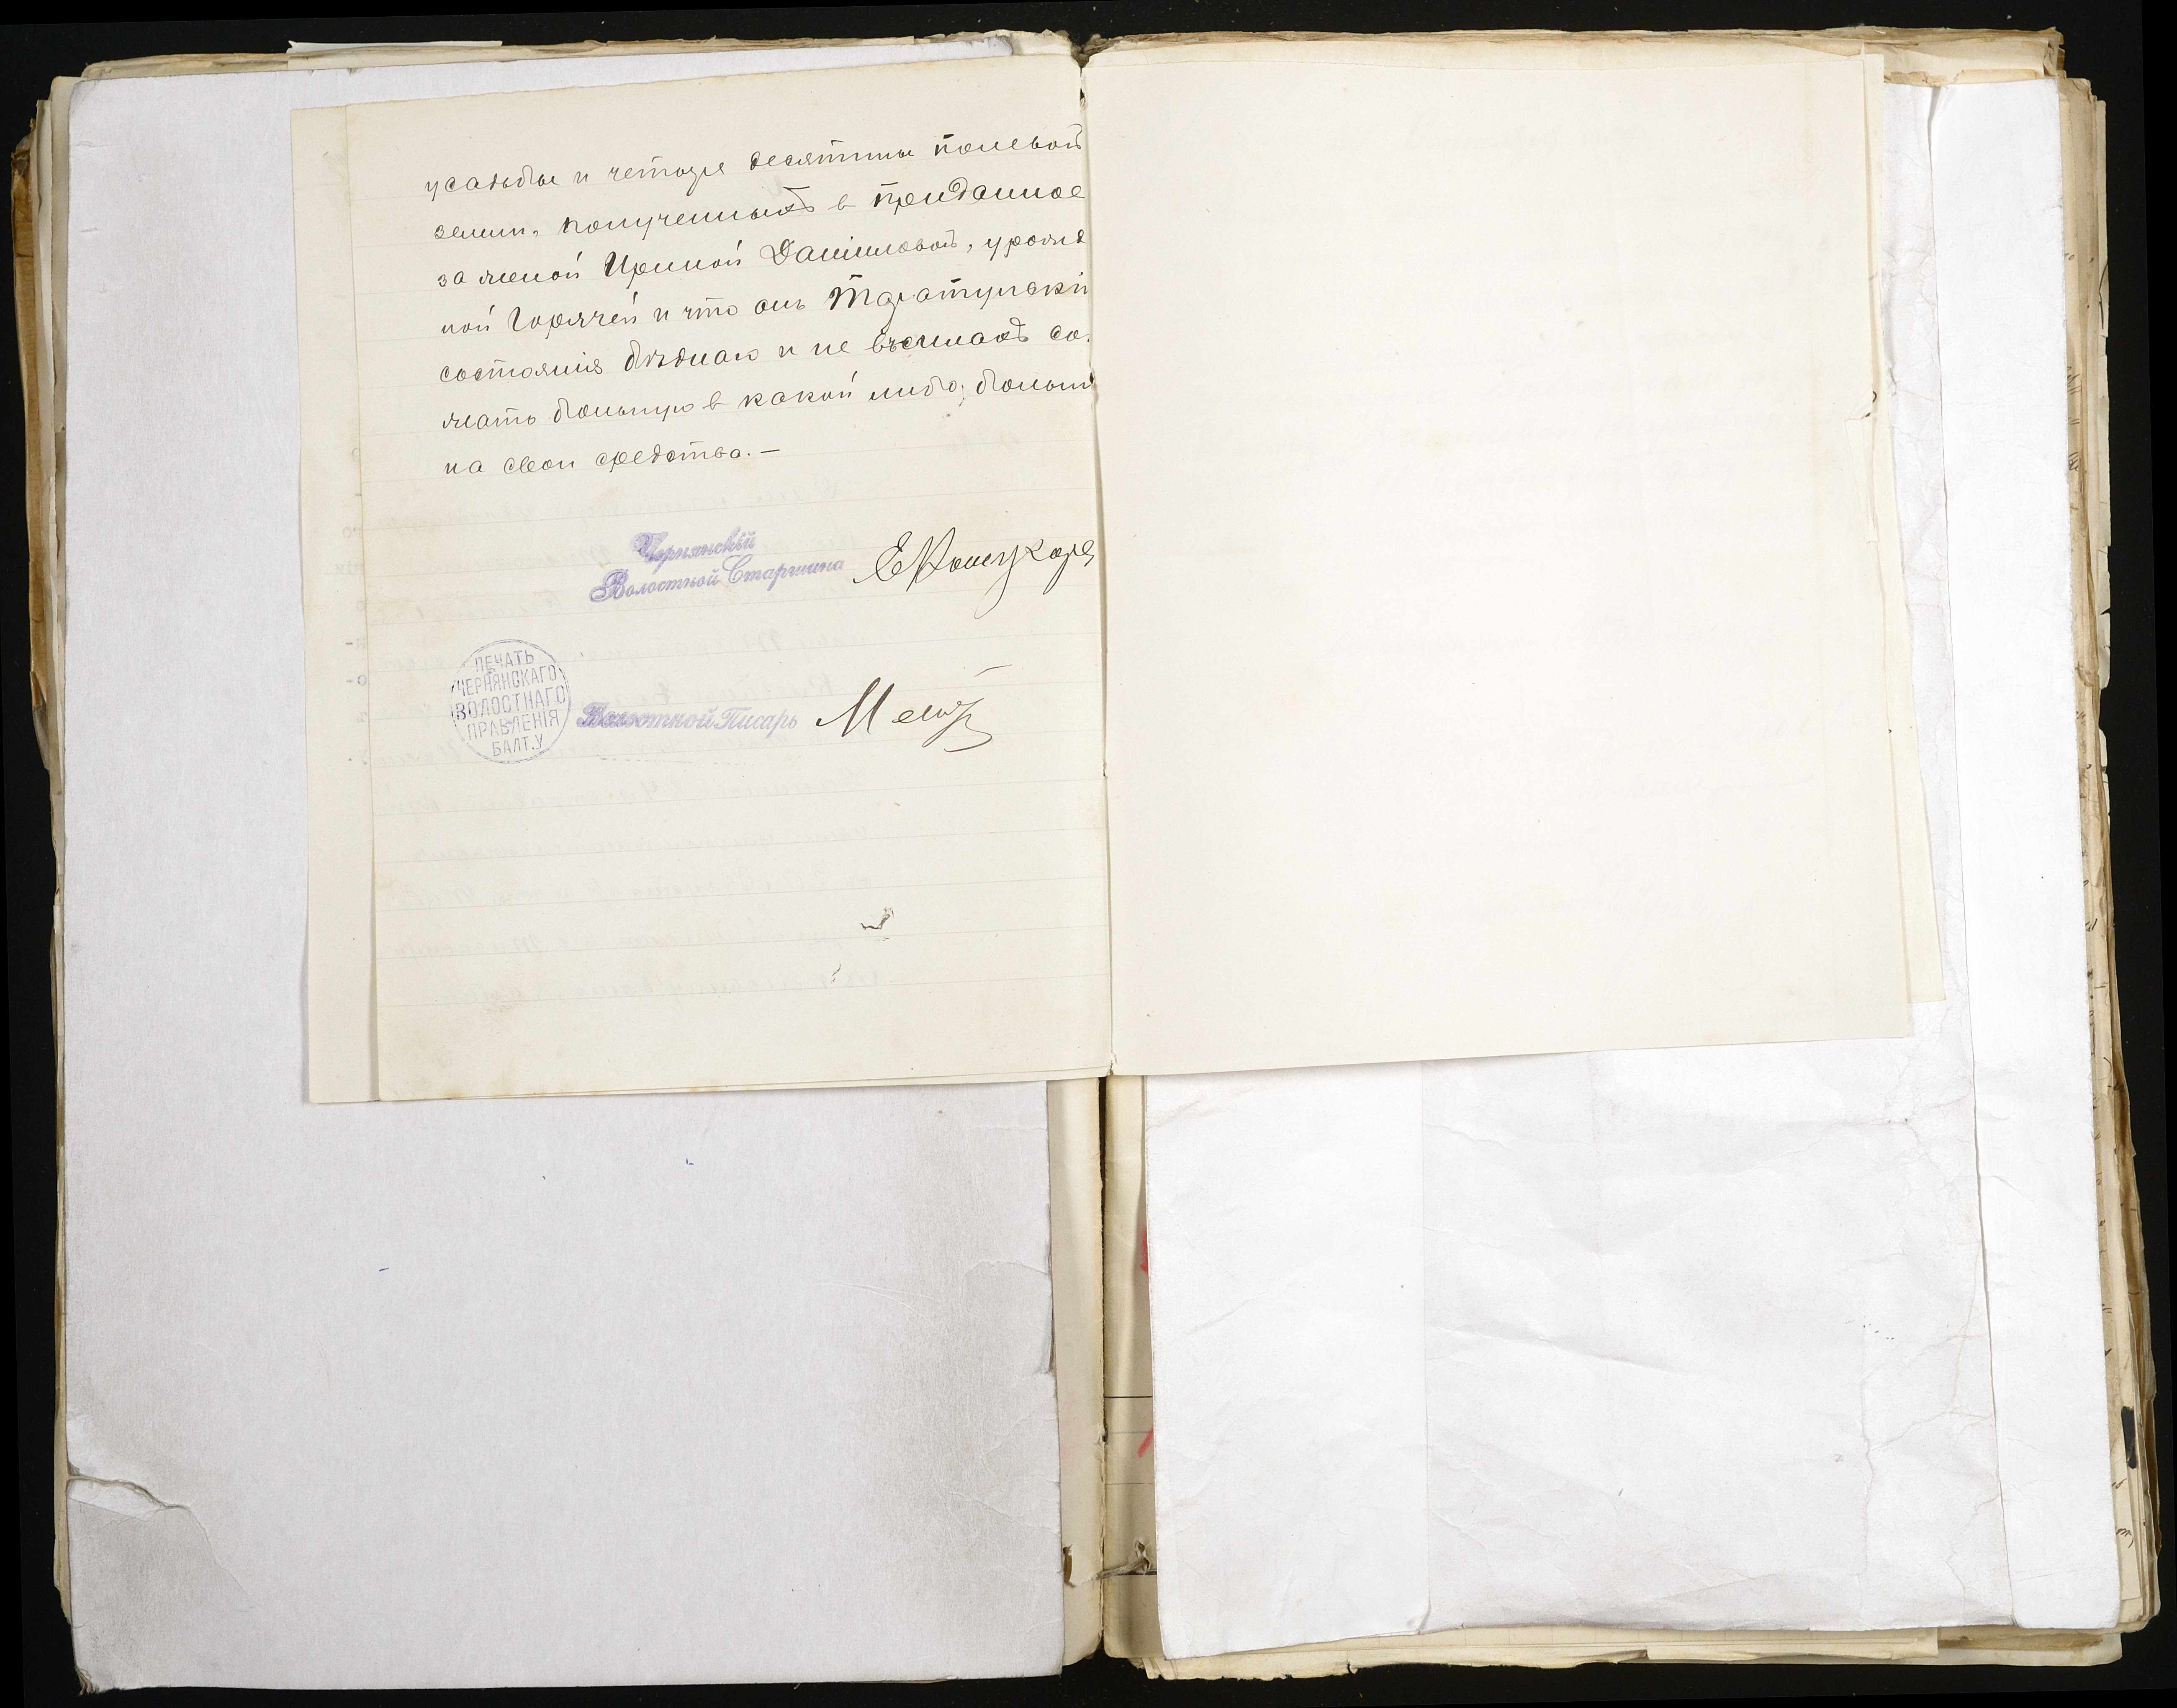 усадьбы и четыре десятины полевой
земли, полученныхъ в приданное
за женой Ириной Даниловой, урожд
ной Горячей и что онъ
состоянія бѣднаго и не въ силахъ со-
жать больную в какой либо
на свои средства.—
Чернянскій
Волостной Старшина
ПЕЧАТЬ
ЧЕРНЯНСКАГО
ВОЛОСТНАГО
ПРАВЛЕНІЯ
БАЛТ. У
Волостной Писарь